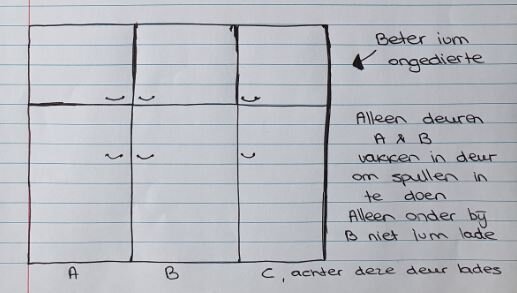 Beter ivm
ongedierte
Alleen deuren
A & B
vakken in deur
om spullen in
te doen
Alleen onder bij
B niet ivm lade
A
B
C, achter deze deur lades